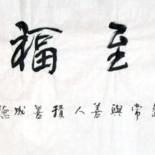 至福
常與善人積善成